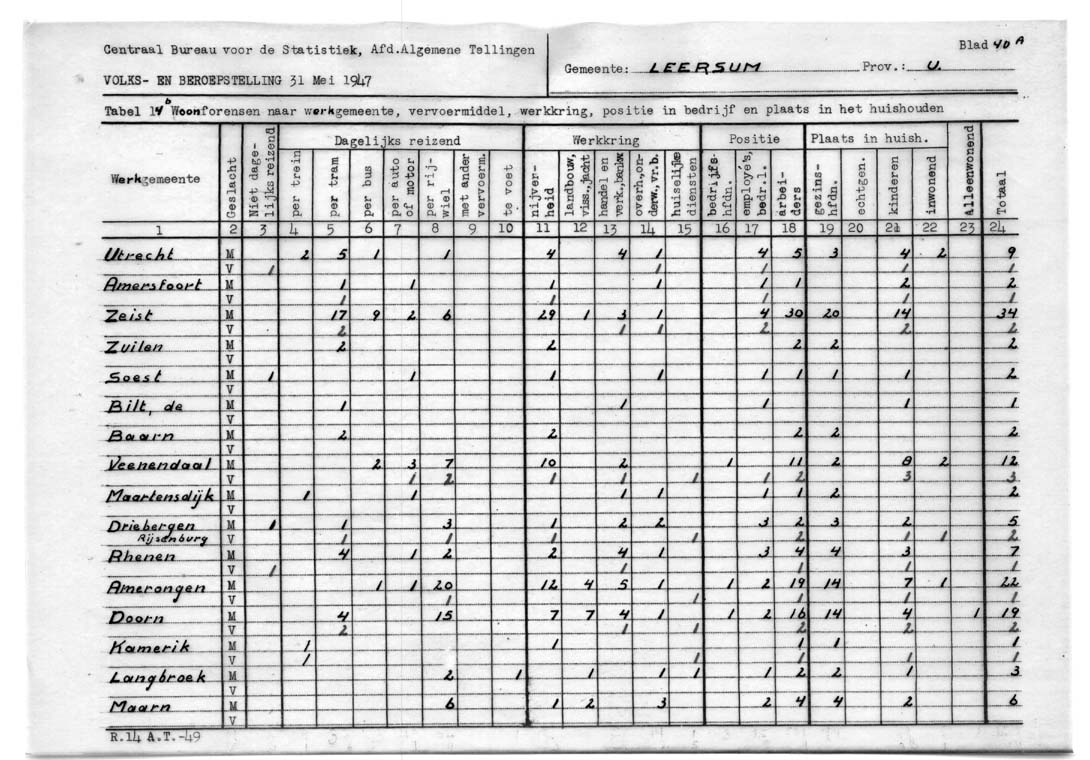 Centraal Bureau voor de Statistiek, Afd.Algemene Tellingen
Blad 40 A
VOLKS- EN BEROEPSTELLING 31 Mei 1947
Gemeente: LEERSUM Prov.: U.
Tabel 14b Woonforensen naar werkgemeente, vervoermiddel, werkkring, positie in bedrijf en plaats in het huishouden
Werkgemeente Geslacht Niet dage-lijks reizend Dagelijks reizend Werkkring Positie Plaats in huish. Alleenwonend Totaal
per trein per tram per bus per auto of motor per rij-wiel met ander vervoerm. te voet nijver-heid landbouw, viss.,jacht handel en verk.,bankw. overh.,on-derw.,vr.b. huiselijke diensten bedrijfs-hfdn. employé's, bedr.l. arbei-ders gezins-hfdn. echtgen. kinderen inwonend
1 2 3 4 5 6 7 8 9 10 11 12 13 14 15 16 17 18 19 20 21 22 23 24
Utrecht M 2 5 1 1 4 4 1 4 5 3 4 2 9
V 1 1 1 1 1
Amersfoort M 1 1 1 1 1 1 2 2
V 1 1 1 1 1
Zeist M 17 9 2 6 29 1 3 1 4 30 20 14 34
V 2 1 1 2 2 2
Zuilen M 2 2 2 2 2
V
Soest M 1 1 1 1 1 1 1 1 2
V
Bilt, de M 1 1 1 1 1
V
Baarn M 2 2 2 2 2
V
Veenendaal M 2 3 7 10 2 1 11 2 8 2 12
V 1 2 1 1 1 1 2 3 3
Maartensdijk M 1 1 1 1 1 1 2 2
V
Driebergen M 1 1 3 1 2 2 3 2 3 2 5
Rijsenburg V 1 1 1 1 2 1 1 2
Rhenen M 4 1 2 2 4 1 3 4 4 3 7
V 1 1 1 1 1
Amerongen M 1 1 20 12 4 5 1 1 2 19 14 7 1 22
V 1 1 1 1 1
Doorn M 4 15 7 7 4 1 1 2 16 14 4 1 19
V 2 1 1 2 2 2
Kamerik M 1 1 1 1 1
V 1 1 1 1 1
Langbroek M 2 1 1 1 1 1 2 2 1 3
V
Maarn M 6 1 2 3 2 4 4 2 6
V
R.14 A.T.-49